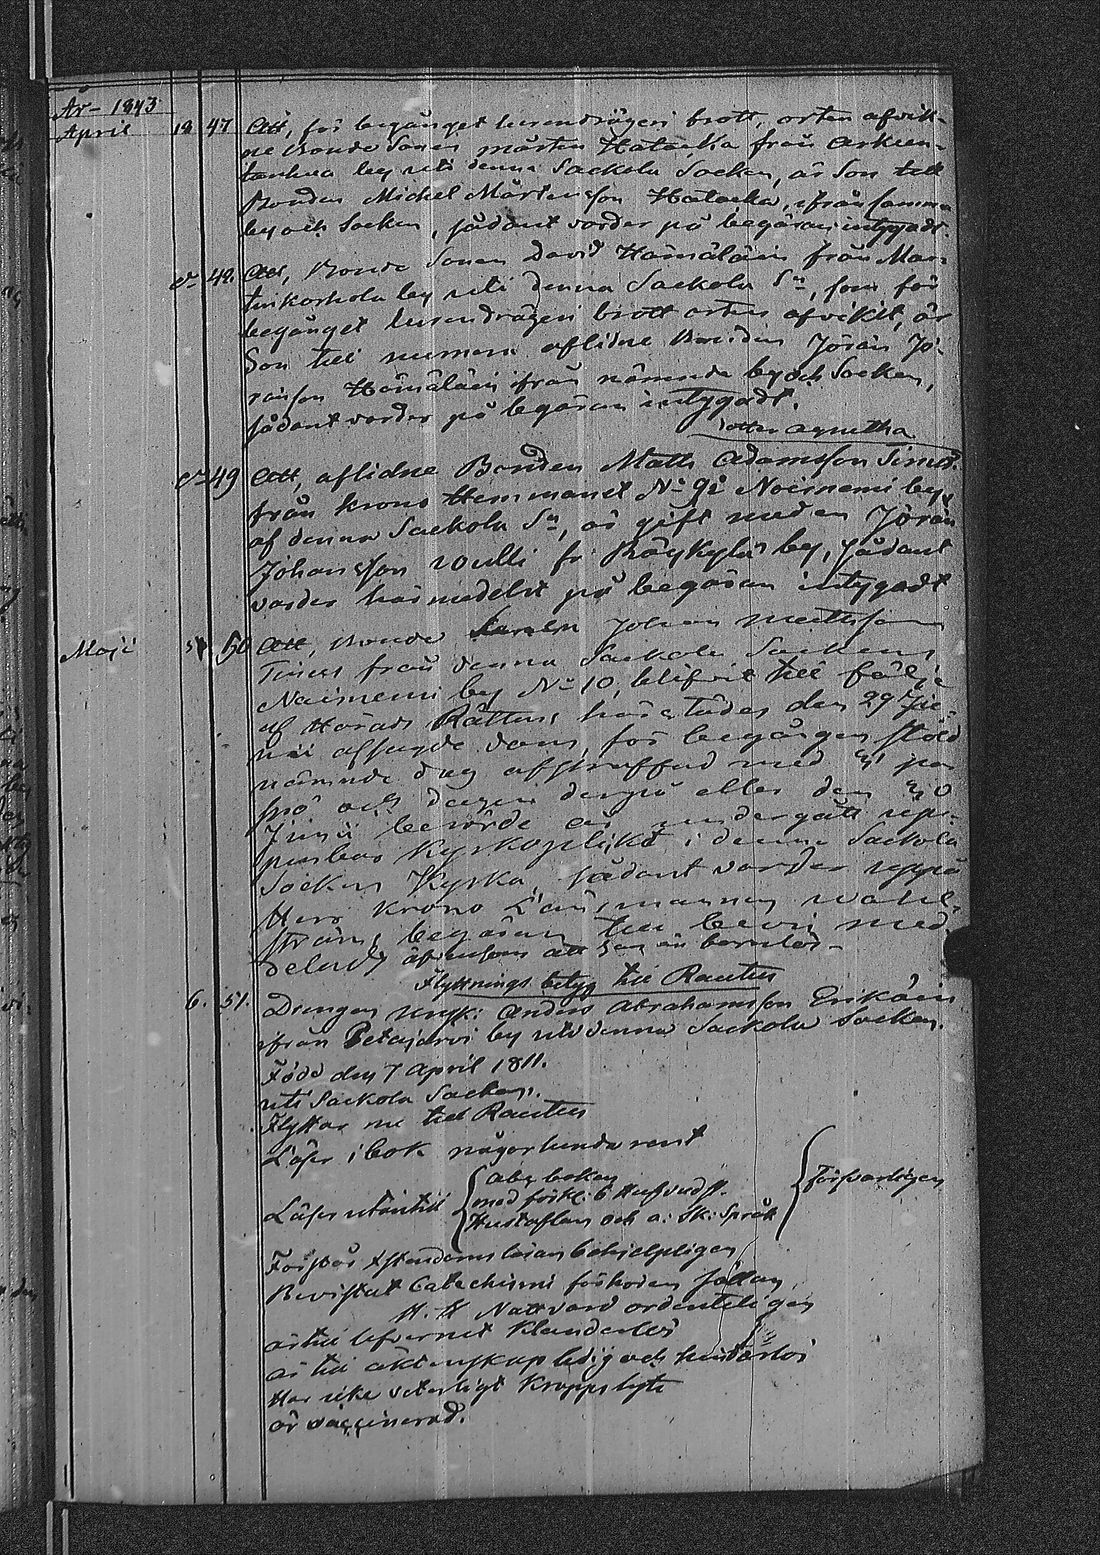 År 1843
April 18 47 Att, för begånget lurendrägeri brott, orten afvik-
ne Bonde Sonen Mårten Hatacka från Arkun-
tanhua by uti denna Sackola Socken, är Son till
Bonden Michel Mårtensson Hatacka, ifrån samma
by och Socken, sådant varder på begäran intygadt.
do 48. Att, Bonde Sonen David Hämäläin från Mar-
tinkorhola by uti denna Sackola Sn, som för
begånget lurendrägeri brott orten afvikit, är
Son till numera aflidne Bonden Jöran Jö-
ransson Hämäläin ifrån nämnde by och Socken,
sådant varder på begäran intygadt.
dotter Agnetha
do 49 Att, aflidne Bonden Matts Adamsson
från krono Hemmanet No 9 Noisniemi by
af denna Sackola Sn, är gift med en Jöran
Johansson fr. Röykylä by, sådant
varder härmedelst på begäran intygadt
Maji 5 50 Att, Bonde Johan Mattsson
från denna Sackola Sockens
Noisniemi by No 10, blifvit till följe
af Härads Rättens härstädes den 29
afsagde dom, för begången stöld
nämnde dag afstraffad med par
spö och dagen derpå eller den 30
berörde år undergått uppe-
nenbar Kyrkoplikt i denna Sackola
Socken Kyrka, sådant varder uppå
Herr Krono Länsmannen
ströms begäran till bevis med-
deladt, äfvensom att han är barnlös
Flyttnings betyg till Rautus
6. 51. Drengen ynsk: Anders Abrahamsson Erikäin
ifrån Petäjärvi by uti denna Sackola Socken.
Född den 7 April 1811.
uti Sackola Socken.
Flyttar nu till Rautus
Läser i bok någorlunda rent
Abc boken
Läser utantill med förkl: 6 Hufvudst. Försvarligen
Hustaflan och a: Sk: Språk
Förstår Christendoms läran behjelpligen
Bevistat Catechismi förhören sällan
H. H Nattvard ordentligen
är till lefvernet klanderlös
är till äktenskap ledig och hinderlös
Har icke veterligt Kroppslyte
är vaccinerad.